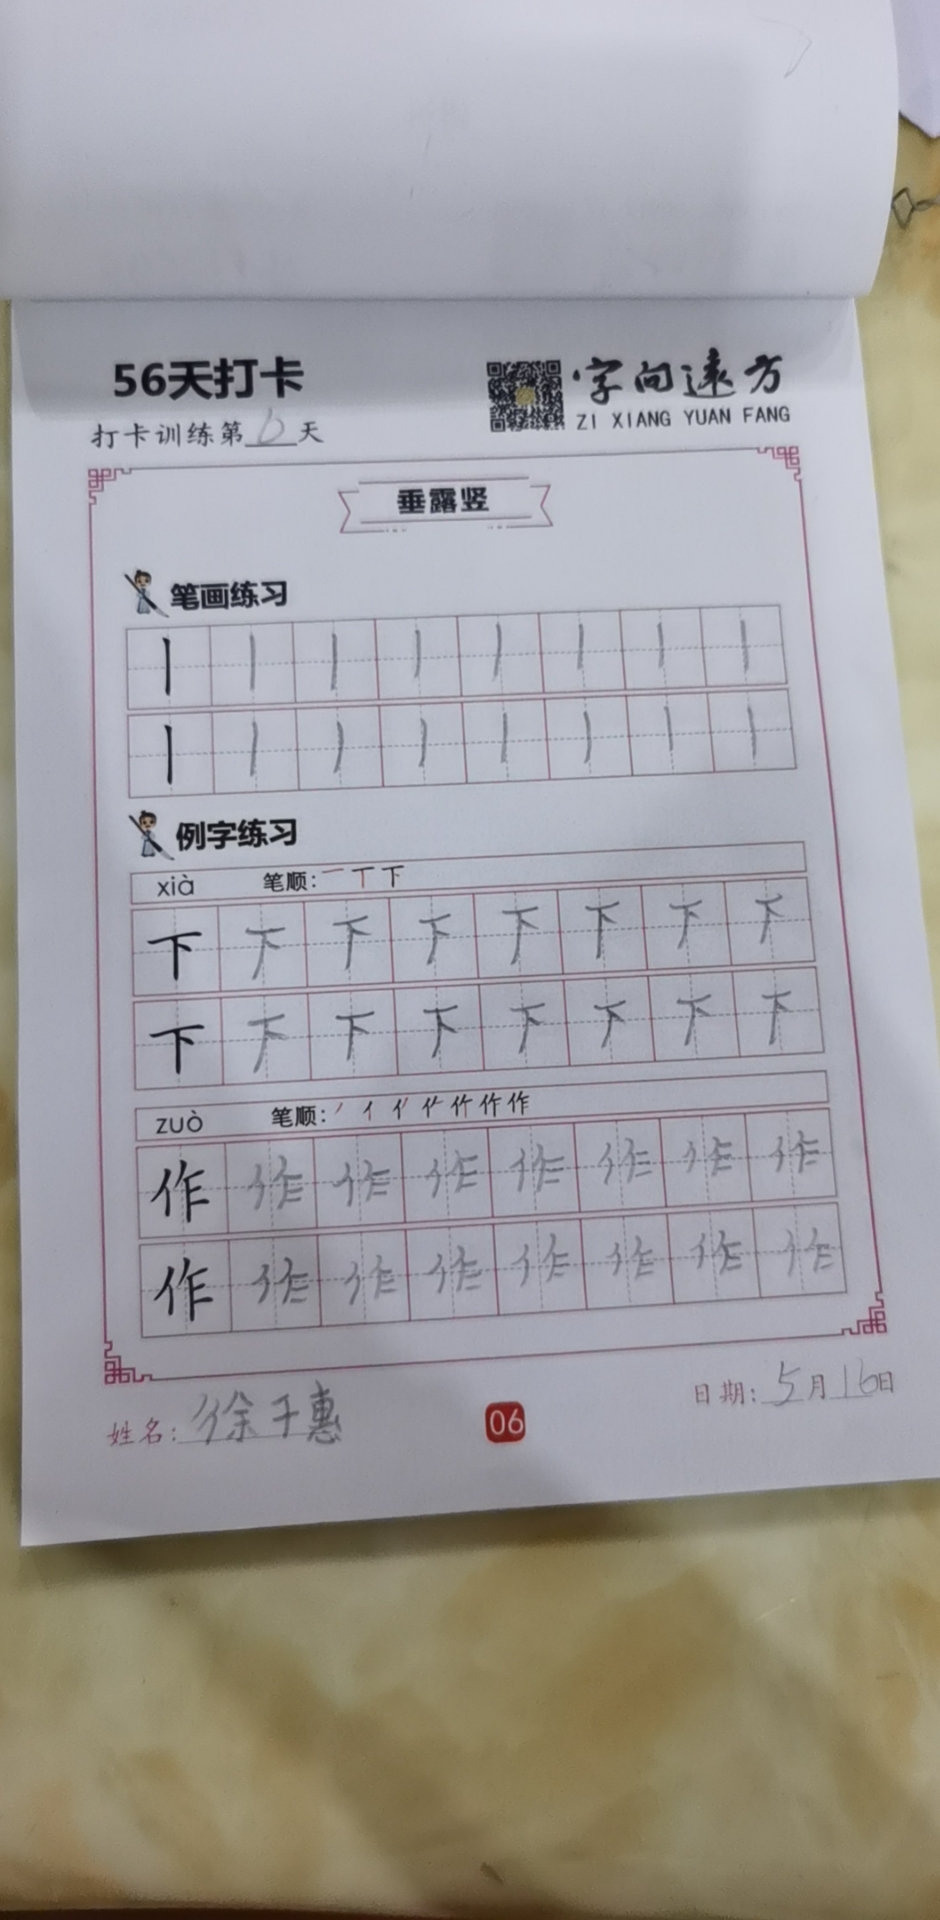 56天打卡
字向远方
ZI XIANG YUAN FANG
打卡训练第6天
垂露竖
笔画练习
丨丨丨丨丨丨丨丨
丨丨丨丨丨丨丨丨
例字练习
xià 笔顺：一 丅 下
下下下下下下下下
下下下下下下下下
zuò 笔顺：
作作作作作作作作
作作作作作作作作
姓名：徐千惠
06
日期：5月16日